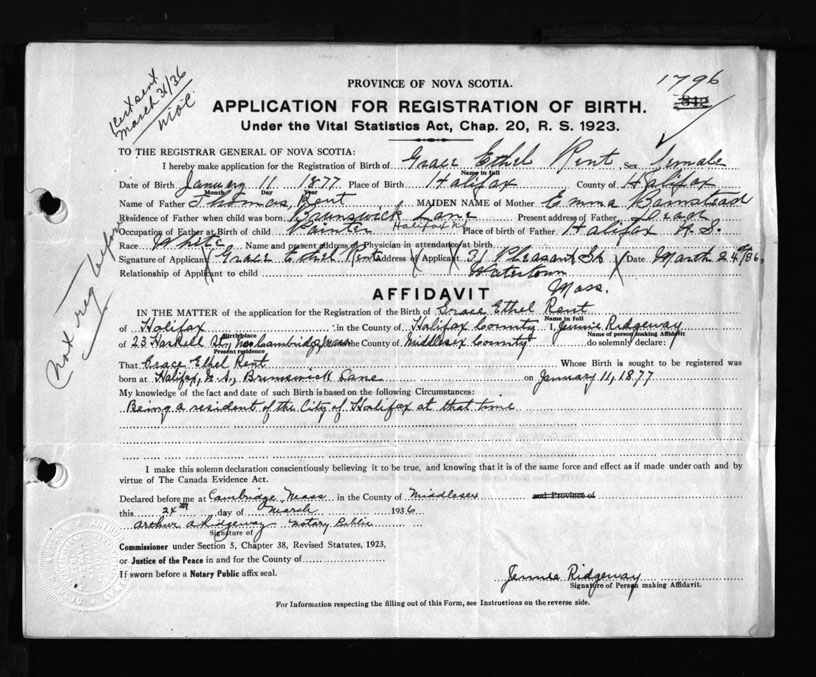 Cert sent
March 31/36
1796
842
PROVINCE OF NOVA SCOTIA.
APPLICATION FOR REGISTRATION OF BIRTH.
Under the Vital Statistics Act, Chap. 20, R. S. 1923.
TO THE REGISTRAR GENERAL OF NOVA SCOTIA:
I hereby make application for the Registration of Birth of Grace Ethel Rent Sex Female
Name in full
Date of Birth January 11 1877 Place of Birth Halifax County of Halifax
Month Day Year
Name of Father Thomas Rent MAIDEN NAME of Mother Emma Bamstead
Residence of Father when child was born Brunswick Lane Present address of Father Dead
Occupation of Father at Birth of child Painter Halifax N.S. Place of birth of Father Halifax N.S.
Race White Name and present address of Physician in attendance at birth
Signature of Applicant Grace Ethel Rent Address of Applicant 31 Pleasant St Date March 24th/36
Relationship of Applicant to child Watertown
Mass.
not reg before
AFFIDAVIT
IN THE MATTER of the application for the Registration of the Birth of Grace Ethel Rent
Name in full
of Halifax in the County of Halifax County I, Jennie Ridgeway
Birthplace Name of person making Affidavit
of 23 Haskell St., No. Cambridge, Mass the County of Middlesex County do solemnly declare:
Present residence
That Grace Ethel Rent Whose Birth is sought to be registered was
born at Halifax, N.S., Brunswick Lane on January 11, 1877
My knowledge of the fact and date of such Birth is based on the following Circumstances:
Being a resident of the City of Halifax at that time
I make this solemn declaration conscientiously believing it to be true, and knowing that it is of the same force and effect as if made under oath and by
virtue of The Canada Evidence Act.
Declared before me at Cambridge Mass in the County of Middlesex and Province of
this 24th day of March 1936
Arthur A Ridgeway Notary Public
Signature of
Commissioner under Section 5, Chapter 38, Revised Statutes, 1923,
or Justice of the Peace in and for the County of
If sworn before a Notary Public affix seal.
Jennie Ridgeway
Signature of Person making Affidavit.
For Information respecting the filling out of this Form, see Instructions on the reverse side.